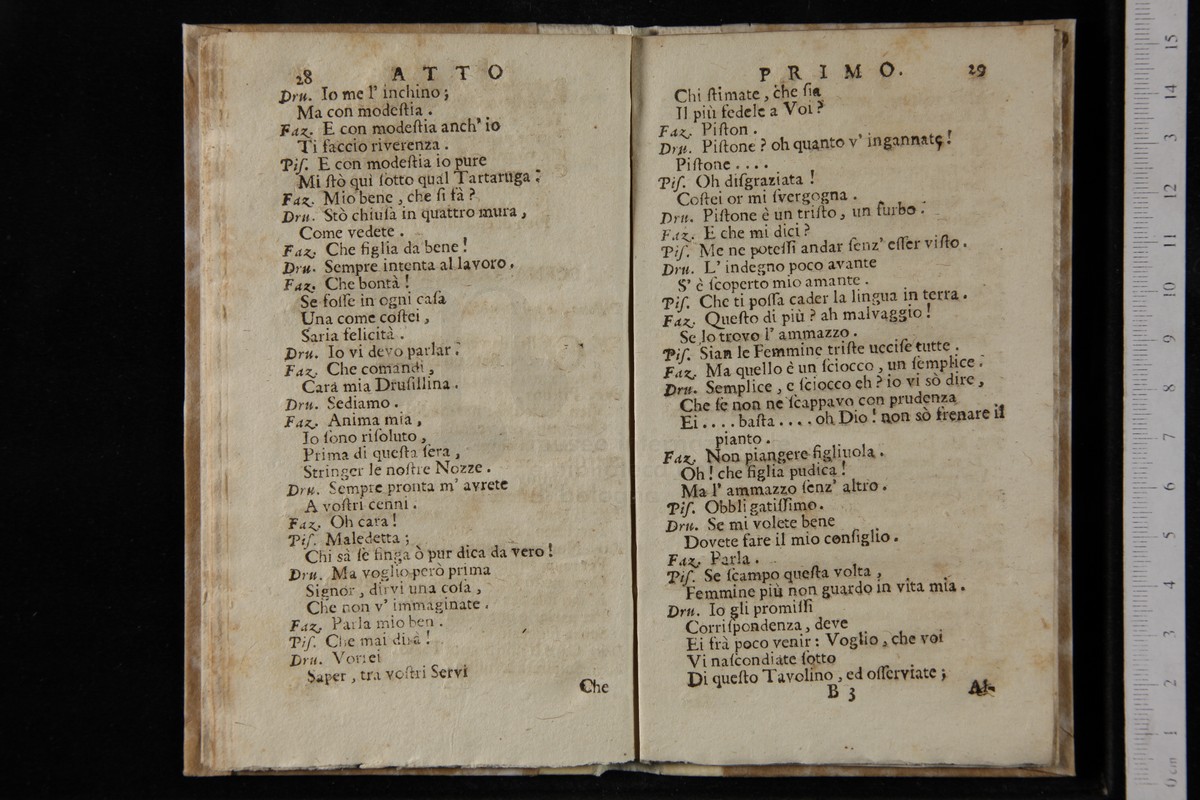 28 ATTO
Dru. Io me l' inchino;
Ma con modeſtia.
Faz. E con modeſtia anch' io
Ti faccio riverenza.
Piſ. E con modeſtia io pure
Mi ſtò qui ſotto qual Tartaruga.
Faz. Mio bene, che ſi fà?
Dru. Stò chiuſa in quattro mura,
Come vedete.
Faz. Che figlia da bene!
Dru. Sempre intenta al lavoro.
Faz. Che bontà!
Se foſſe in ogni caſa
Una come coſtei,
Saria felicità.
Dru. Io vi devo parlar.
Faz. Che comandi,
Cara mia Druſillina.
Dru. Sediamo.
Faz. Anima mia,
Io ſono riſoluto,
Prima di queſta ſera,
Stringer le noſtre Nozze.
Dru. Sempre pronta m' avrete
A voſtri cenni.
Faz. Oh cara!
Piſ. Maledetta;
Chi sà ſe finga ò pur dica da vero!
Dru. Ma voglio però prima
Signor, dirvi una coſa,
Che non v' immaginate.
Faz. Parla mio ben.
Piſ. Che mai dirà!
Dru. Vorrei
Saper, tra voſtri Servi
Che
PRIMO. 29
Chi ſtimate, che ſia
Il più fedele a Voi?
Faz. Piſton.
Dru. Piſtone? oh quanto v' ingannate!
Piſtone....
Piſ. Oh diſgraziata!
Coſtei or mi ſvergogna.
Dru. Piſtone è un triſto, un furbo.
Faz. E che mi dici?
Piſ. Me ne poteſſi andar ſenz' eſſer viſto.
Dru. L' indegno poco avante
S' è ſcoperto mio amante.
Piſ. Che ti poſſa cader la lingua in terra.
Faz. Queſto di più? ah malvaggio!
Se lo trovo l' ammazzo.
Piſ. Sian le Femmine triſte ucciſe tutte.
Faz. Ma quello è un ſciocco, un ſemplice.
Dru. Semplice, e ſciocco eh? io vi sò dire,
Che ſe non ne ſcappavo con prudenza
Ei.... baſta.... oh Dio! non sò frenare il
pianto.
Faz. Non piangere figliuola.
Oh! che figlia pudica!
Ma l' ammazzo ſenz' altro.
Piſ. Obbligatiſſimo.
Dru. Se mi volete bene
Dovete fare il mio conſiglio.
Faz. Parla.
Piſ. Se ſcampo queſta volta,
Femmine più non guardo in vita mia.
Dru. Io gli promiſſi
Corriſpondenza, deve
Ei frà poco venir: Voglio, che voi
Vi naſcondiate ſotto
Di queſto Tavolino, ed oſſerviate;
B 3 Al-